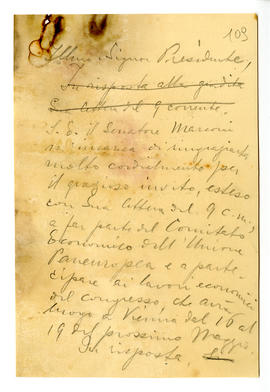 109
Illmo Signor Presidente,
In risposta alla gradita
Sua lettera del 9 corrente
S. E. il Senatore Marconi
m'incarica di ringraziarla
molto cordialmente per
il grazioso invito, esteso
con Sua lettera del 9 c.m.
a far parte del Comitato
Economico dell'Unione
Paneuropea e a parte-
cipare ai lavori economici
del Congresso, che avrà
luogo a Vienna dal 16 al
19 del prossimo Maggio
In risposta,